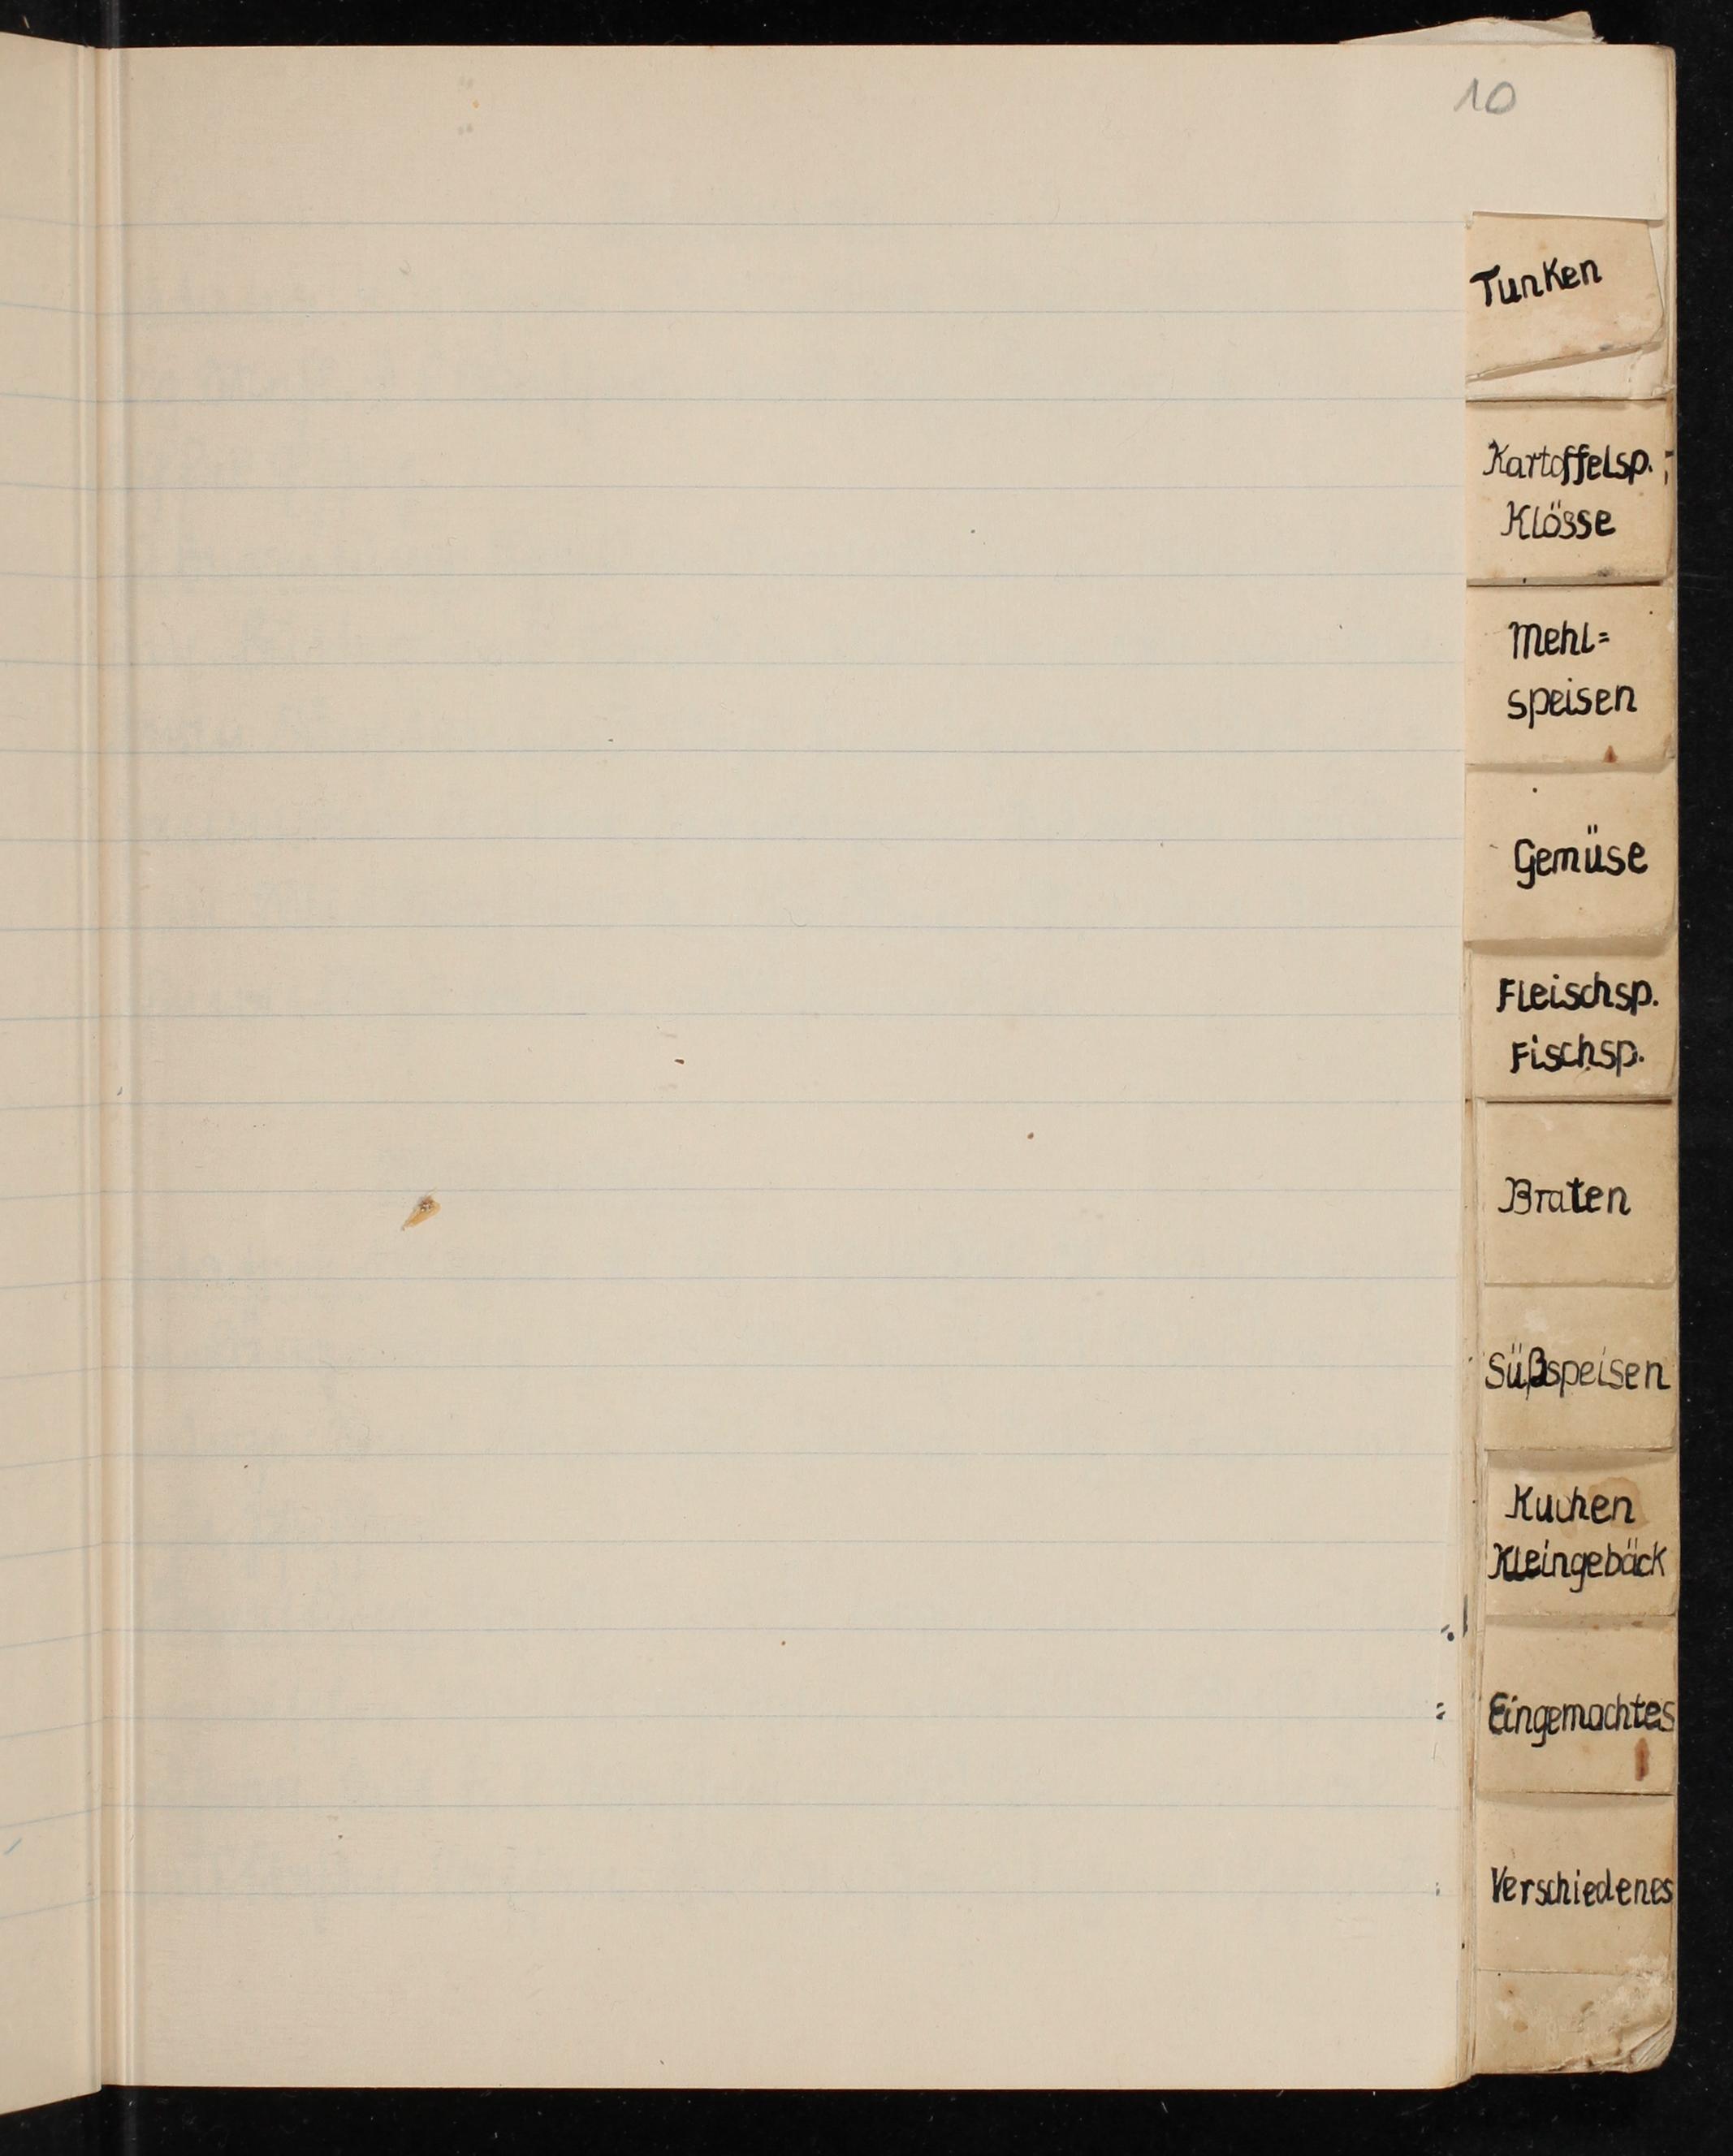 10
Tunken
Kartoffelsp.
Klösse
Mehl=
speisen
Gemüse
Fleischsp.
Fischsp.
Braten
Süßspeisen
Kuchen
Kleingebäck
Eingemachtes
Verschiedenes